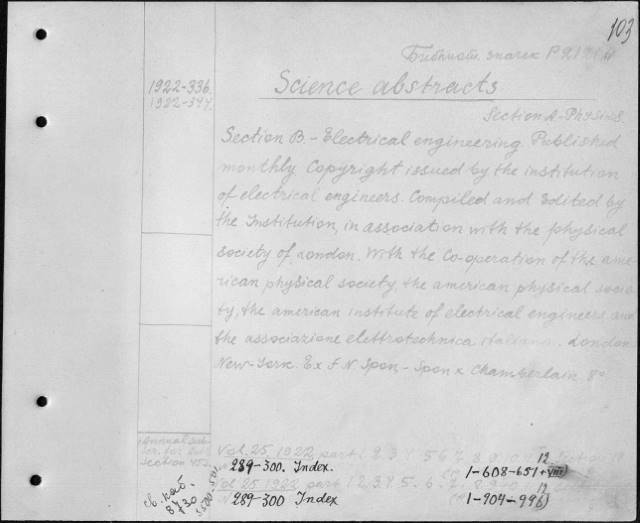 103
Библиот. знак P 2191 A
1922-336.
1922-377.
Science abstracts
Section A-Physics.
Section B.- Electrical engineering. Published
monthly. Copyright issued by the institution
of electrical engineers. Compiled and Edited by
the Institution, in association with the physical
society of London. With the Co-operation of the ame-
rican physical society, the american physical socie-
ty, the american institute of electrical engineers and
the associazione elettrotechnica italiana. London
New-York. E x F N Spon,- Spon x Chamberlain 8°
Annual sub
section
Vol. 25, 1922 part 1 2 3 4 5 6 7 8 9 10 11 12 Section
289-300. Index. 1-608-651+VIII)
Vol 25 1922 part 1 2 3 4 5. 6. 7 8 9 10 11 12
289-300 Index 1-904-996)
св. каб.
8730